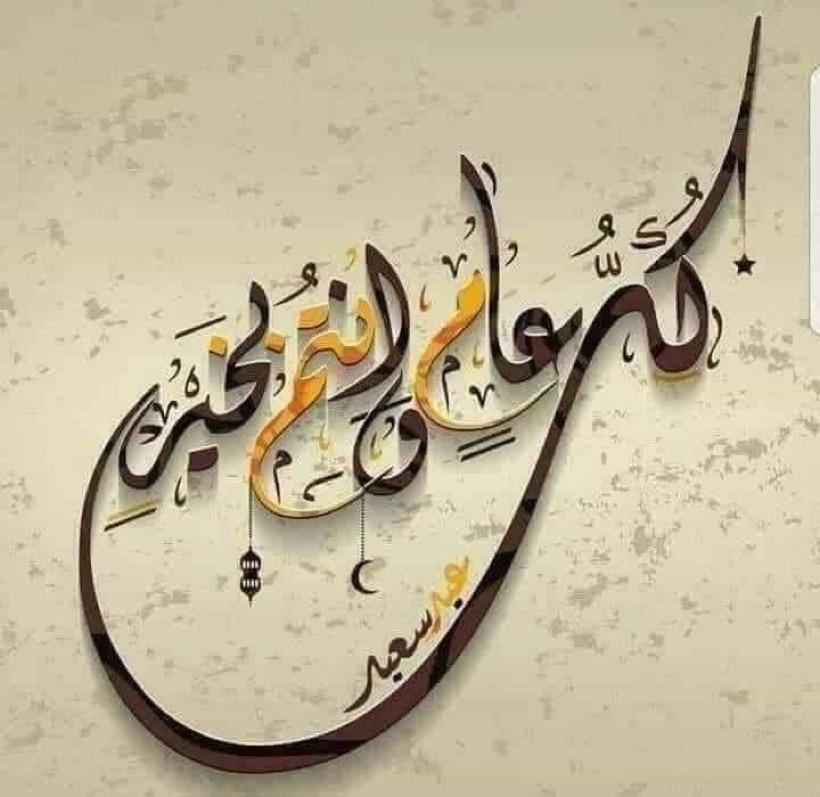 كُلُّ عامٍ وَانتُم بخيرٍ
عيد سعيد